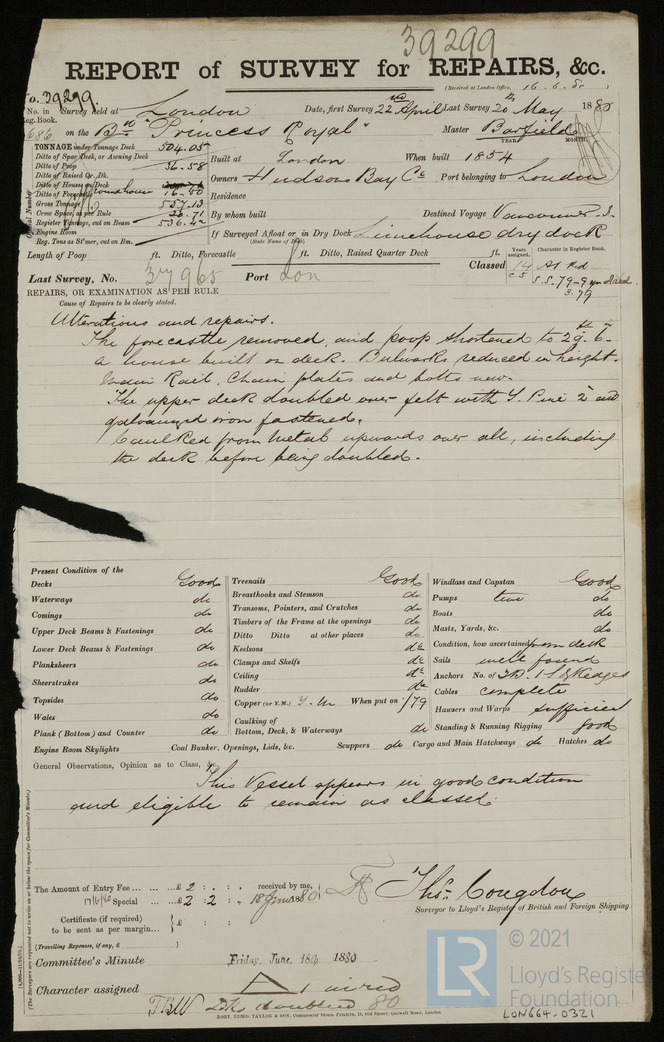 39299
REPORT of SURVEY for REPAIRS, &c.
(Received at London Office, 16.6.80)
No. 39299.
No. in Survey held at London Date, first Survey 22nd April Last Survey 20th May 1880
Reg. Book.
686 on the Bk "Princess Royal" Master Barfield
TONNAGE under Tonnage Deck 504.05
Ditto of Spar Deck, or Awning Deck
Ditto of Poop 36.58
Ditto of Raised Qr. Dk.
Ditto of Houses on Deck
Ditto of Forecastle 16.50
Gross Tonnage 557.13
Crew Space, as per Rule 20.71
Register Tonnage, cut on Beam 536.42
Engine Room
Reg. Tons as St'mer, cut on Bm.
Built at London When built 1854 YEAR MONTH
Owners Hudsons Bay Co Port belonging to London
Residence
By whom built Destined Voyage Vancouver I.
If Surveyed Afloat or in Dry Dock Limehouse dry dock
(State Name of Dock)
Length of Poop ft. Ditto, Forecastle ft. Ditto, Raised Quarter Deck ft.
Years assigned. Character in Register Book.
Classed 14 A1 Red
S.S. 79-9yr
3.79
Last Survey, No. 37965 Port Lon
REPAIRS, OR EXAMINATION AS PER RULE
Cause of Repairs to be clearly stated.
Alterations and repairs.
The forecastle removed, and poop shortened to 29ft 6in
a house built on deck. Bulwarks reduced in height.
Main Rail, Chain plates and bolts new.
The upper deck doubled over felt with Y. Pine 2in and
galvanized iron fastened.
Caulked from Metal upwards over all, including
the deck before being doubled.
Present Condition of the
Decks Good
Waterways do
Comings do
Upper Deck Beams & Fastenings do
Lower Deck Beams & Fastenings do
Planksheers do
Sheerstrakes do
Topsides do
Wales do
Plank (Bottom) and Counter do
Engine Room Skylights Coal Bunker, Openings, Lids, &c. Scuppers do Cargo and Main Hatchways do Hatches do
Treenails Good
Breasthooks and Stemson do
Transoms, Pointers, and Crutches do
Timbers of the Frame at the openings do
Ditto Ditto at other places do
Keelsons do
Clamps and Shelfs do
Ceiling do
Rudder do
Copper (or Y.M.) Y.M When put on /79
Caulking of
Bottom, Deck, & Waterways do
Windlass and Capstan Good
Pumps two do
Boats do
Masts, Yards, &c. do
Condition, how ascertained from deck
Sails well found
Anchors No. of 3B. 1 S. & Kedges
Cables complete
Hawsers and Warps sufficient
Standing & Running Rigging good
General Observations, Opinion as to Class, &c.
This Vessel appears in good condition
and eligible to remain as classed.
The Amount of Entry Fee ... £ 2 : . : received by me,
17/6/80 Special ... £ 2 : 2 : 18 June 1880
Certificate (if required)
to be sent as per margin...
(Travelling Expenses, if any, £ )
Thos. Congdon
Surveyor to Lloyd's Register of British and Foreign Shipping
Committee's Minute Friday, June, 18th 1880
Character assigned A 1 in red
Dk doubled 80
RORT. EDMD. TAYLOR & SON, Commercial Steam Printers, 19, Old Street, Goswell Road, London.
LR © 2021
Lloyd's Register
Foundation
LON664-0321